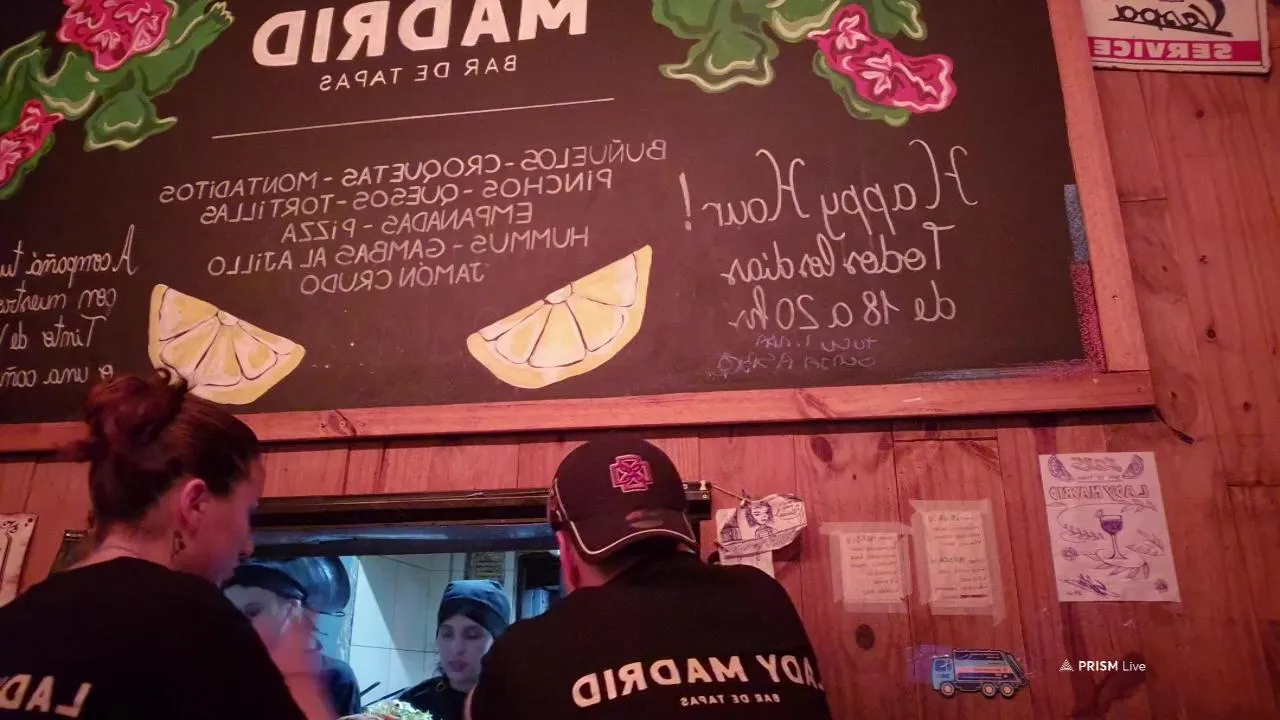 MADRID
BAR DE TAPAS
BUÑUELOS - CROQUETAS - MONTADITOS
PINCHOS - QUESOS - TORTILLAS
EMPANADAS - PIZZA
HUMMUS - GAMBAS AL AJILLO
JAMÓN CRUDO
Happy Hour!
Todos los dias
de 18 a 20 hs
Acompañá tu
con nuestro
Tinto de
SERVICE
LADY MADRID
LADY MADRID
BAR DE TAPAS
LAD
PRISM Live